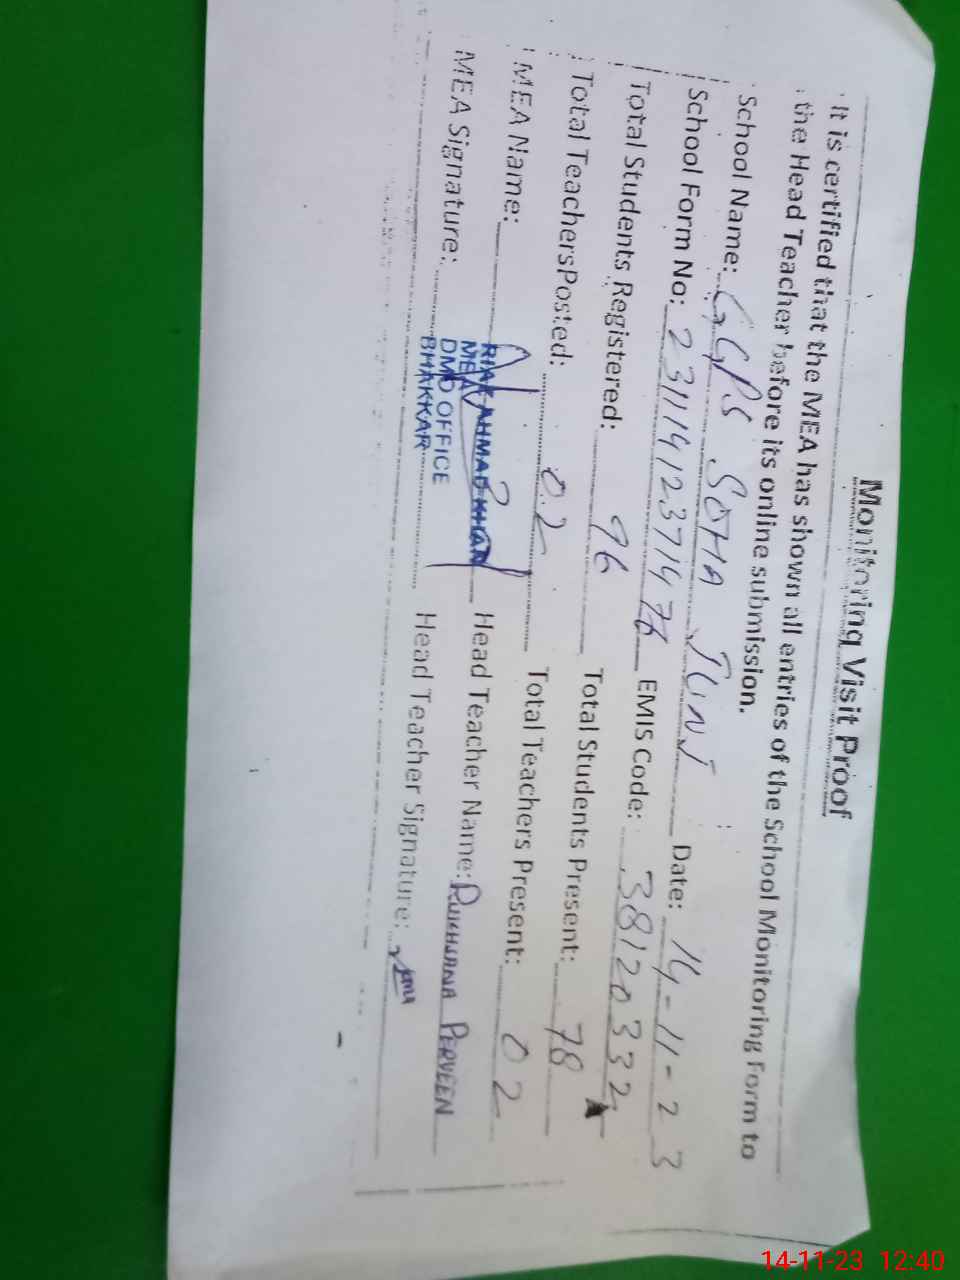 Monitoring Visit Proof
It is certified that the MEA has shown all entries of the School Monitoring Form to
the Head Teacher before its online submission.
School Name: GGPS SOHA JUNI Date: 14-11-23
School Form No: EMIS Code: 38120332
Total Students Registered: 96 Total Students Present: 78
Total TeachersPosted: 02 Total Teachers Present: 02
MEA Name: RIAZ AHMAD KHAN Head Teacher Name: RUKHSANA PERVEEN
MEA
MEA Signature: DMO OFFICE Head Teacher Signature:
BHAKKAR
14-11-23 12:40